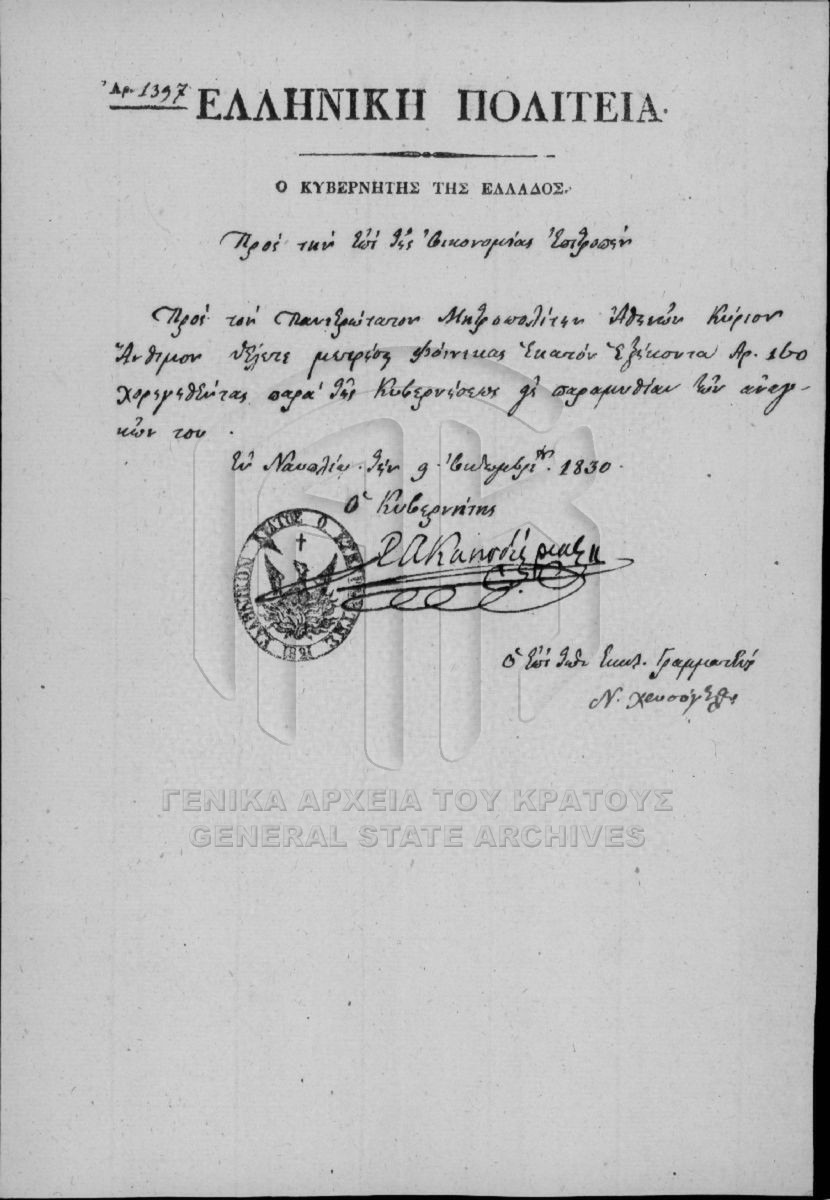 Ἀρ. 1397
ΕΛΛΗΝΙΚΗ ΠΟΛΙΤΕΙΑ.
Ο ΚΥΒΕΡΝΗΤΗΣ ΤΗΣ ΕΛΛΑΔΟΣ.
Πρὸς τὴν ἐπὶ τῆς Οἰκονομίας Ἐπιτροπήν
Πρὸς τὸν Πανιερώτατον Μητροπολίτην Ἀθηνῶν Κύριον
Ἄνθιμον θέλετε μετρήσει φοίνικας ἑκατὸν ἑξήκοντα Ἀρ. 160
χορηγηθέντας παρὰ τῆς Κυβερνήσεως εἰς παραμυθίαν τῶν ἀναγ-
κῶν του.
Ἐν Ναυπλίῳ τὴν 9 Ὀκτωμβρίου 1830.
Ὁ Κυβερνήτης
Ι Α Καποδίστριας
ΕΛΛΗΝΙΚΗ ΠΟΛΙΤΕΙΑ
1821
Ὁ ἐπὶ τῶν Ἐκκλ. Γραμματεύς
Ν. Χρυσόγελος
ΓΕΝΙΚΑ ΑΡΧΕΙΑ ΤΟΥ ΚΡΑΤΟΥΣ
GENERAL STATE ARCHIVES